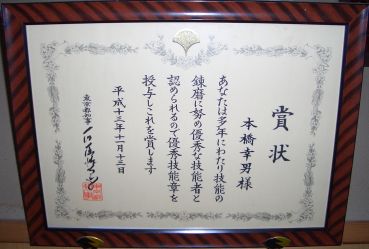 賞状
本橋幸男様
あなたは多年にわたり技能の
錬磨に努め優秀な技能者と
認められるので優秀技能章を
授与しこれを賞します
平成十三年十一月十三日
東京都知事 石原慎太郎